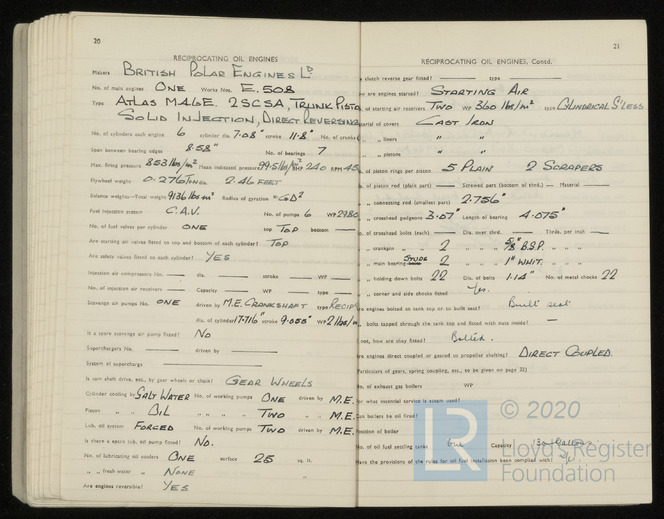 20
RECIPROCATING OIL ENGINES
Makers BRITISH POLAR ENGINES LD
No. of main engines ONE Works Nos. E.508
Type ATLAS M46E. 2SCSA, TRUNK PISTO
SOLID INJECTION, DIRECT REVERSING
No. of cylinders each engine 6 cylinder dia. 7.08" stroke 11.8" No. of cranks
Span between bearing edges 8.58" No. of bearings 7
Max. firing pressure 853 lbs/in² Mean indicated pressure 99.5 lbs/in² BHP 240 RPM 45
Flywheel weight 0.276 TONS 2.46 FEET
Balance weights—Total weight Radius of gyration "GD²
Fuel injection system C.A.V. No. of pumps 6 WP 2980
No. of fuel valves per cylinder ONE top TOP bottom —
Are starting air valves fitted to top and bottom of each cylinder? TOP
Are safety valves fitted to each cylinder? YES
Injection air compressors No. — dia. — stroke — WP —
No. of injection air receivers — Capacity — WP — type —
Scavenge air pumps No. ONE driven by M.E. CRANKSHAFT type RECIP
dia. of cylinder 17.716" stroke 9.055" WP 2 lbs/
Is a spare scavenge air pump fitted? NO
Superchargers No. — driven by —
System of supercharge —
Is cam shaft drive, etc., by gear wheels or chain? GEAR WHEELS
Cylinder cooling by SALT WATER No. of working pumps ONE driven by M.E.
Piston " OIL " " " TWO " M.E.
Lub. oil system FORCED No. of working pumps TWO " M.E.
Is there a spare lub. oil pump fitted? NO.
No. of lubricating oil coolers ONE surface 25 sq. ft.
" " fresh water " NONE "
Are engines reversible? YES
21
RECIPROCATING OIL ENGINES, Contd.
s clutch reverse gear fitted? — type —
w are engines started? STARTING AIR
of starting air receivers TWO WP 360 lbs/in² type CYLINDRICAL S'LESS
aterial of covers CAST IRON
" " liners " "
" " pistons " "
of piston rings per piston 5 PLAIN 2 SCRAPERS
of piston rod (plain part) — Screwed part (bottom of thrd.) — Material —
" connecting rod (smallest part) 2.756"
" crosshead gudgeons 3.07" Length of bearing 4.075"
of crosshead bolts (each) — Dia. over thrd. — Thrds. per inch —
" crankpin " 2 " " " 5/8" B.S.P. " "
" main bearing STUDS 2 " " " 1" WHIT. " "
" holding down bolts 22 Dia. of bolts 1.14" No. of metal chocks 22
" corner and side chocks fitted Yes.
re engines bolted to tank top or to built seat? Built seat
" bolts tapped through the tank top and fitted with nuts inside? —
not, how are they fitted? Bolted.
re engines direct coupled or geared to propeller shafting? DIRECT COUPLED.
Particulars of gears, spring coupling, etc., to be given on page 22)
No. of exhaust gas boilers WP
for what essential service is steam used?
Can boilers be oil fired?
Position of boiler
No. of oil fuel settling tanks One Capacity
Have the provisions of the rules for oil fuel installation been complied with?
LR
© 2020
Lloyd's Register
Foundation